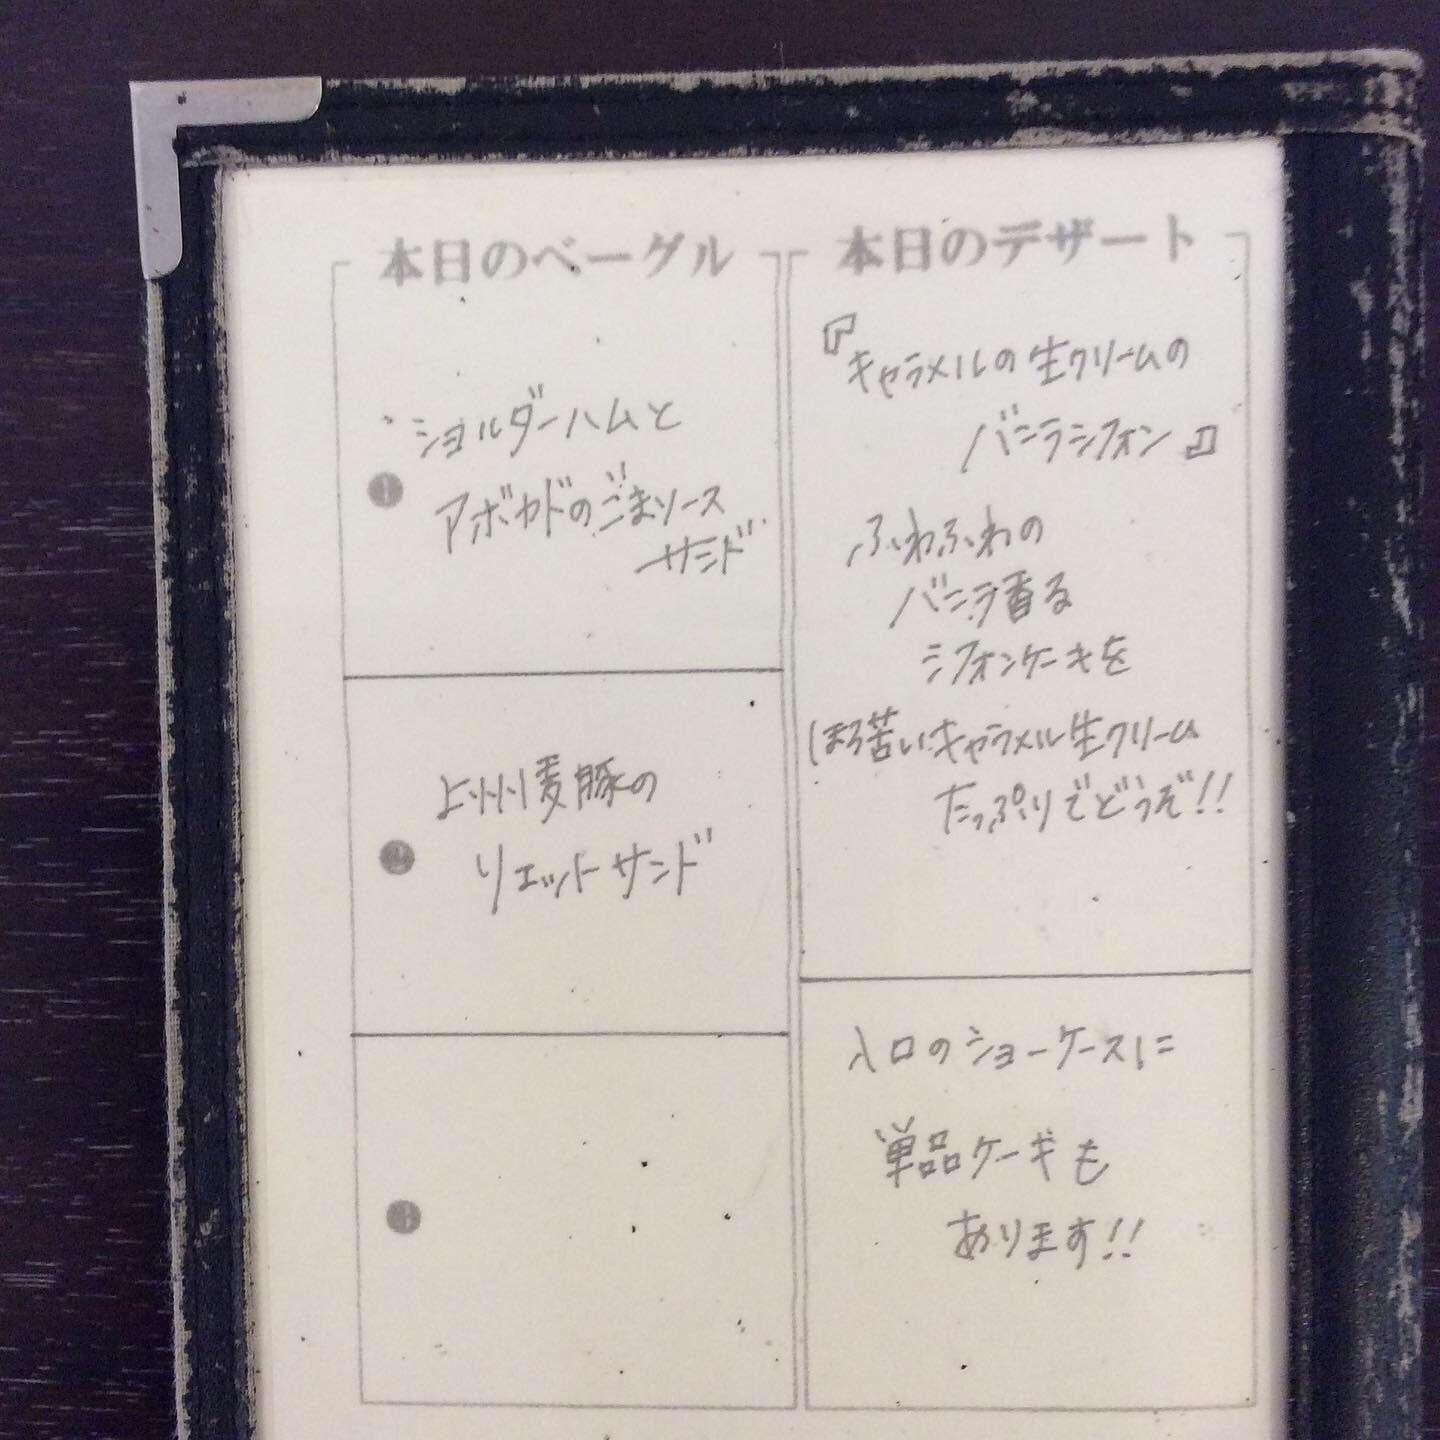 本日のベーグル
❶
ショルダーハムと
アボカドのごまソース
サンド
❷
上州麦豚の
リエットサンド
❸
本日のデザート
『キャラメルの生クリームの
バニラシフォン』
ふわふわの
バニラ香る
シフォンケーキを
ほろ苦いキャラメル生クリーム
たっぷりでどうぞ!!
入口のショーケースに
単品ケーキも
あります!!